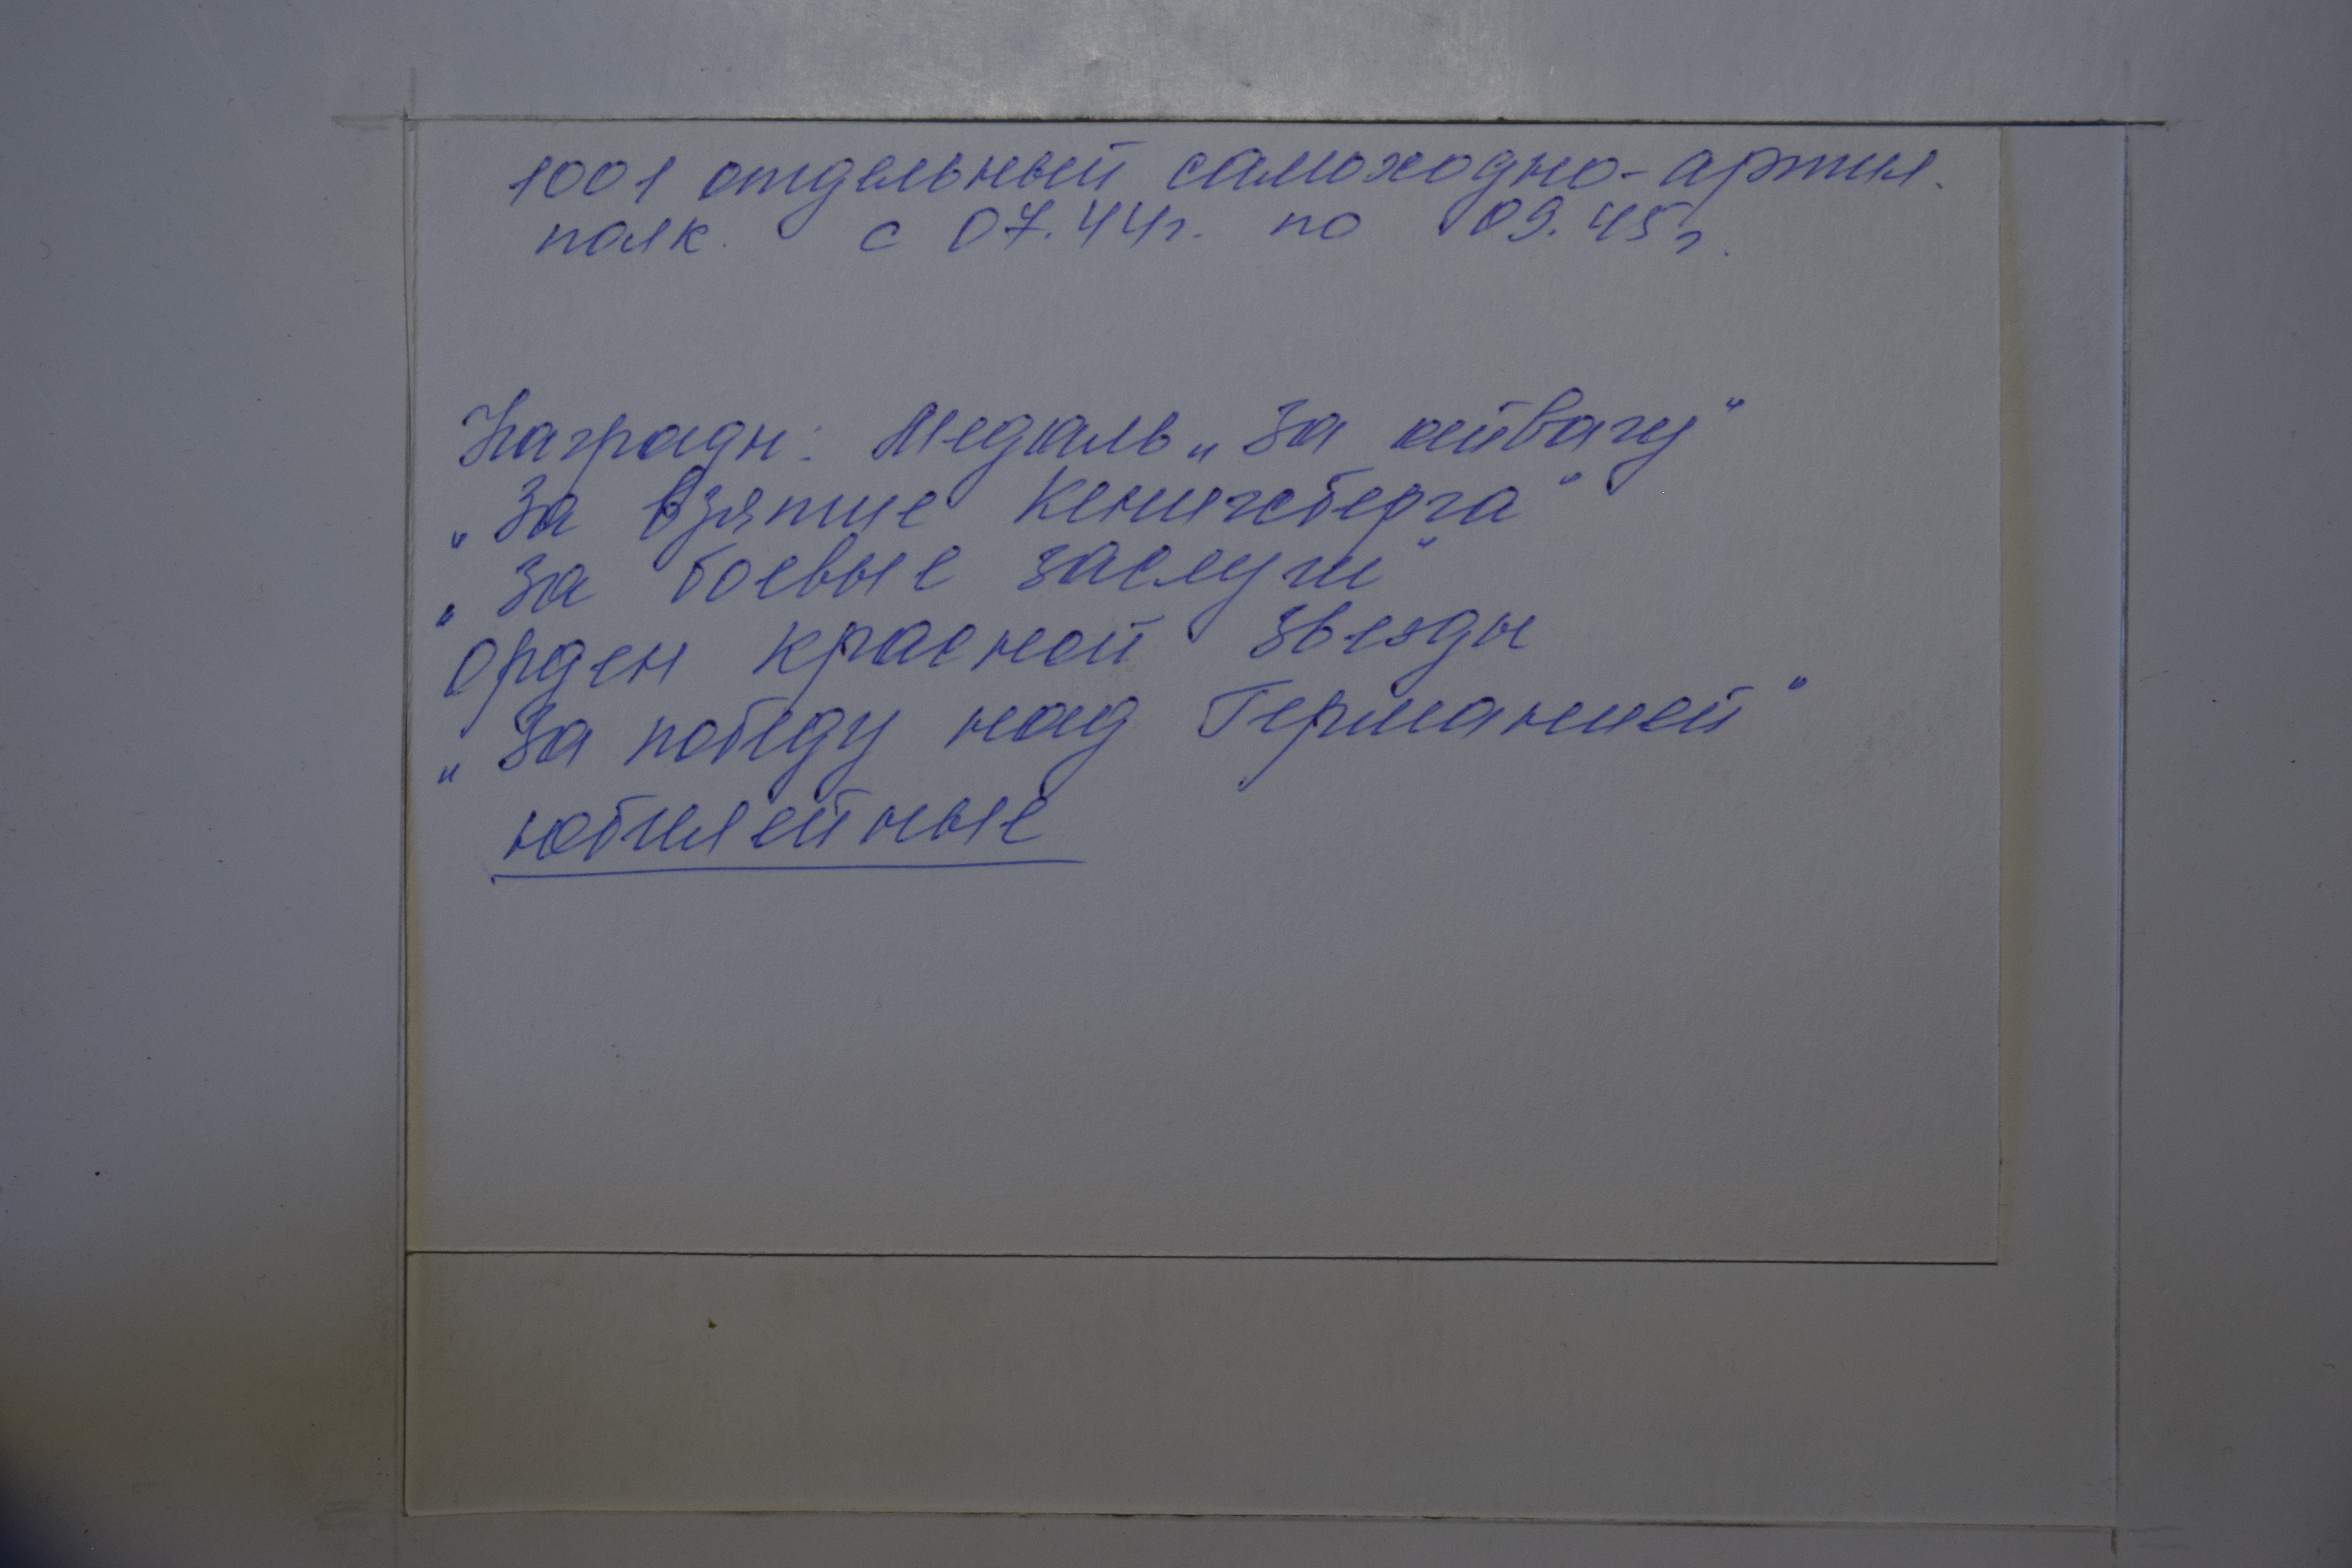 1001 отдельный самоходно-артил.
полк. с 07.44г. по 09.45г.
Награды: Медаль „За отвагу"
„За взятие Кенигсберга"
„За боевые заслуги"
Орден красной звезды
„За победу над Германией"
юбилейные